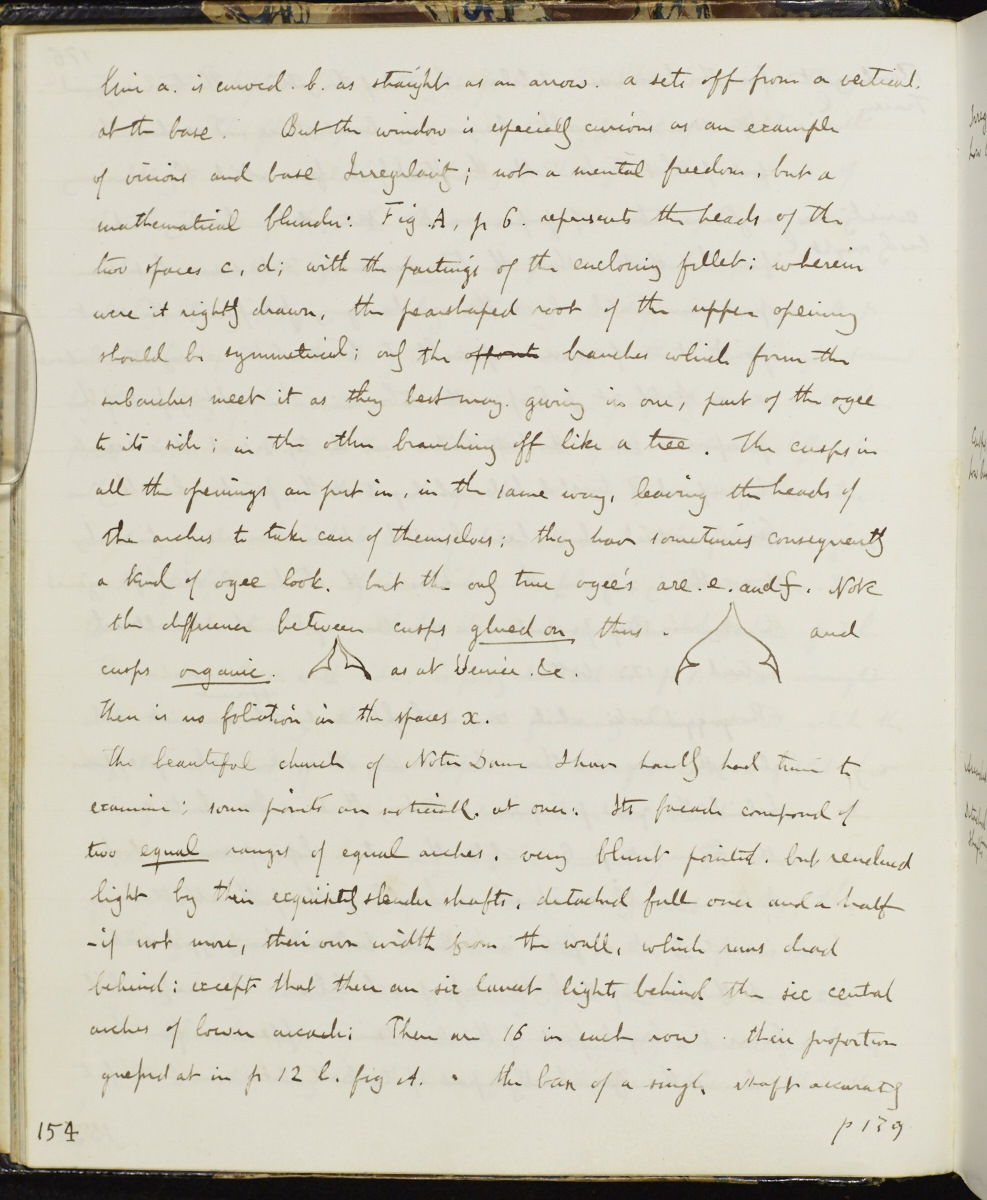 line a. is curved. b. as straight as an arrow. a sets off from a vertical.
at the base. But the window is especially curious as an example
of vicious and base Irregularity; not a mental freedom, but a
mathematical blunder: Fig. A, p 6. represents the heads of the
two spaces c, d; with the partings of the enclosing fillet: wherein
were it rightly drawn, the pearshaped root of the upper opening
should be symmetrical; only the branches which form the
subarches meet it as they best may. giving in one, part of the ogee
to its side; in the other branching off like a tree. The cusps in
all the openings are put in, in the same way, leaving the heads of
the arches to take care of themselves: they have sometimes consequently
a kind of ogee look. but the only true ogee's are. e. and f. Note
the difference between cusps glued on, thus. and
cusps organic. as at Venice. &c.
There is no foliation in the spaces x.
The beautiful church of Notre Dame I have hardly had time to
examine; some points are noticeable. at once: Its facade composed of
two equal ranges of equal arches. very blunt pointed. but rendered
light by their exquisitely slender shafts, detached full once and a half
- if not more, their own width from the wall, which runs dead
behind: except that there are six lancet lights behind the six central
arches of lower arcade; There are 16 in each row. their proportion
guessed at in p 12 l. fig A. the base of a single shaft accurately
154
p 159